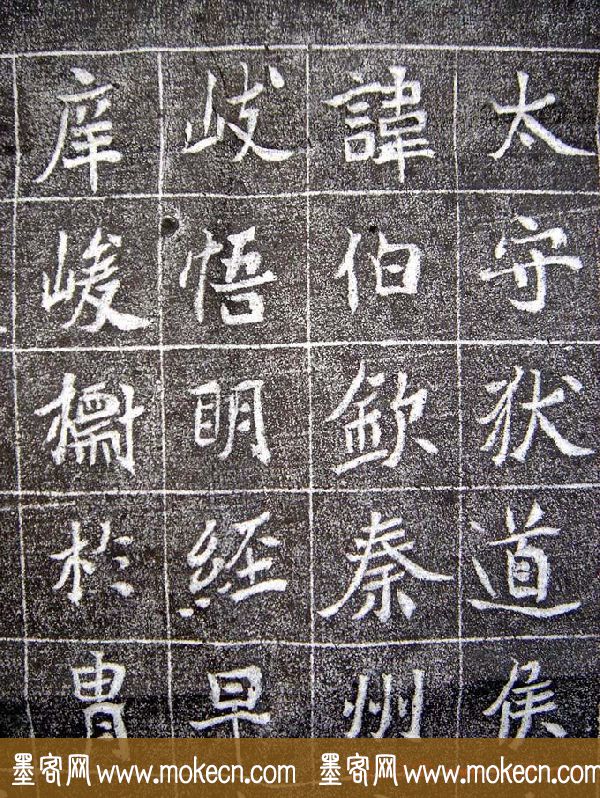 太守狄道侯
諱伯欽秦州
岐悟眀經早
庠峻於胄
墨客网 www.mokecn.com 墨客网 www.mokecn.com